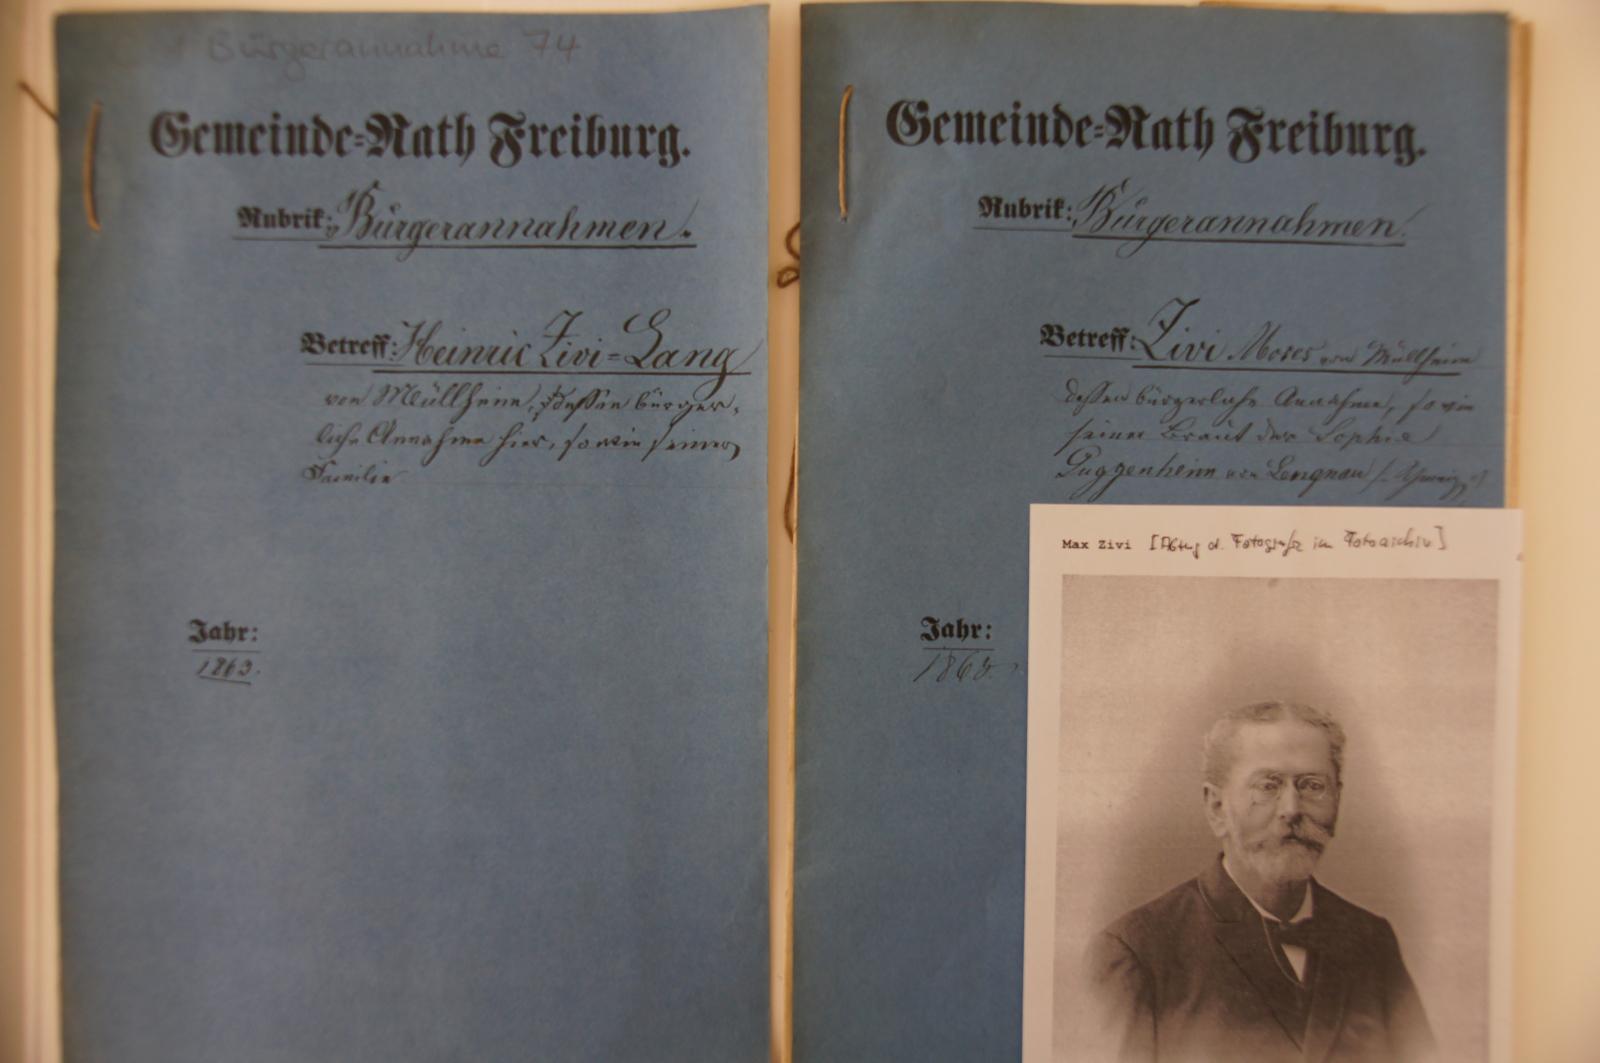 Bürgerannahme 74
Gemeinde=Rath Freiburg.
Rubrik: „Bürgerannahmen.
Betreff: Heinric Zivi=Lang
von Müllheim, dessen bürger-
liche Annahme hier, sowie seiner
Familie
Jahr:
1863.
Gemeinde=Rath Freiburg.
Rubrik: Bürgerannahmen.
Betreff: Zivi Moses von Müllheim
dessen bürgerliche Annahme, sowie
seiner Braut der Sophie
Guggenheim von Lengnau
Jahr:
Max Zivi [Abzug d. Fotografie im Fotoarchiv]